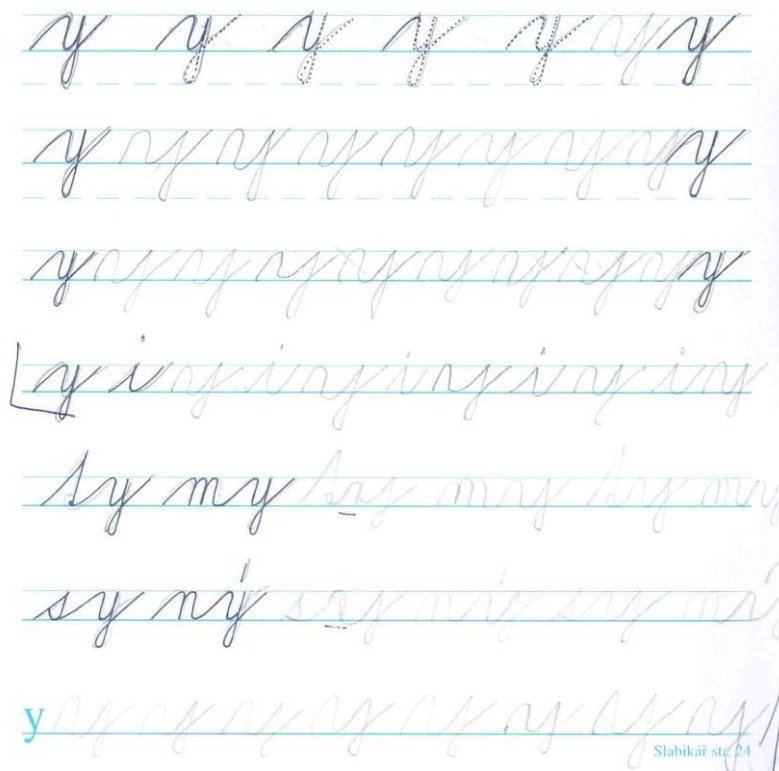 y y y y y y y
y y y y y y y y y
y y y y y y y y y y
y i y i y i y i y i y
ty my ty my ty my
sy ný sy ný sy ný
y y y y y y y y y
Slabikář str. 24